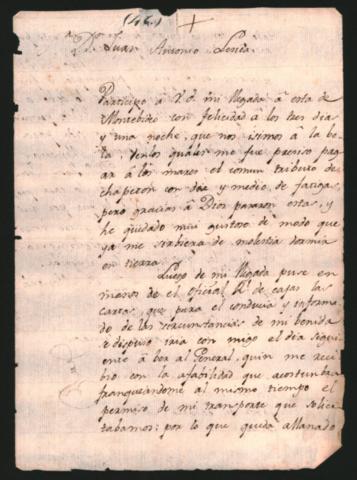 (46) +
Dn. Juan Antonio Lezica
Participo a Vd. mi llegada à esta de
Montebideo con felicidad à los tres dias
y una noche, que nos isimos à la be-
la, en los quales me fue preciso pag-
ar à los mares el comun tributo de
chapeton con dia y medio de fatigas
pero gracias à Dios pararon estas, y
he quidado mui gustoso de modo que
ya me serbiera de molestia dormir
en tierra.
Luego de mi llegada puse en
manos de el oficial Rl. de cajas las
cartas que para el conducia y informa-
do de las circunstancias de mi benida
se dispuso iria con migo el dia sigui-
ente à ber al General, quien me reci-
bio con la afabilidad que acostumbra
franqueandome al mismo tiempo el
permiso de mi transporte que solici-
tabamos: por lo que queda allanado